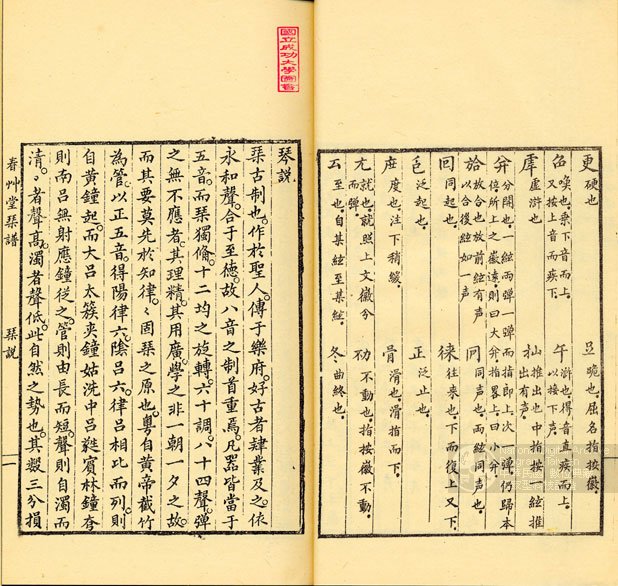 更 硬也
豆 跪也。屈名指按徽。
喚也。乘下音而上。
又按上音而疾下。
午 滸也。得音直疾而上。
以按下声。
虛滸也
推出也中指按一絃推
出有声。
并 分開也。一絃兩彈一彈而指即上次一彈仍歸本
位。所上之徽遠。則曰大并。指畧上曰小并。
故合也放前絃有声
以合後絃如一声
同声也。兩絃同声也。
囘 同起也。
徠 往來也。下而復上又下。
泛起也。
正 泛止也。
度也注下稍緩。
骨 滑也。滑指而下。
就也就照上文徽分
而彈。
不動也。指按徽不動
云 至也。自某絃至某絃。
冬 曲終也。
琴説
琹古制也。作於聖人。傳于樂府。好古者肄業及之。依
永和聲。合于至德。故八音之制首重焉。凡器皆當于
五音。而琹獨俻。十二均之旋轉。六十調。八十四聲。彈
之無不應者。其理精。其用廣。學之非一朝一夕之故。
而其要莫先於知律。〻固琹之原也。粵自黃帝截竹
為管。以正五音。得陽律六。陰呂六。律呂相比而列。則
自黃鐘起。而大呂太簇夾鐘姑洗中呂蕤賓林鐘夷
則南呂無射應鐘從之。管則由長而短。聲則自濁而
清。〻者聲高。濁者聲低。此自然之勢也。其數三分損
春艸堂琹譜
琹説
一
國立成功大學圖書